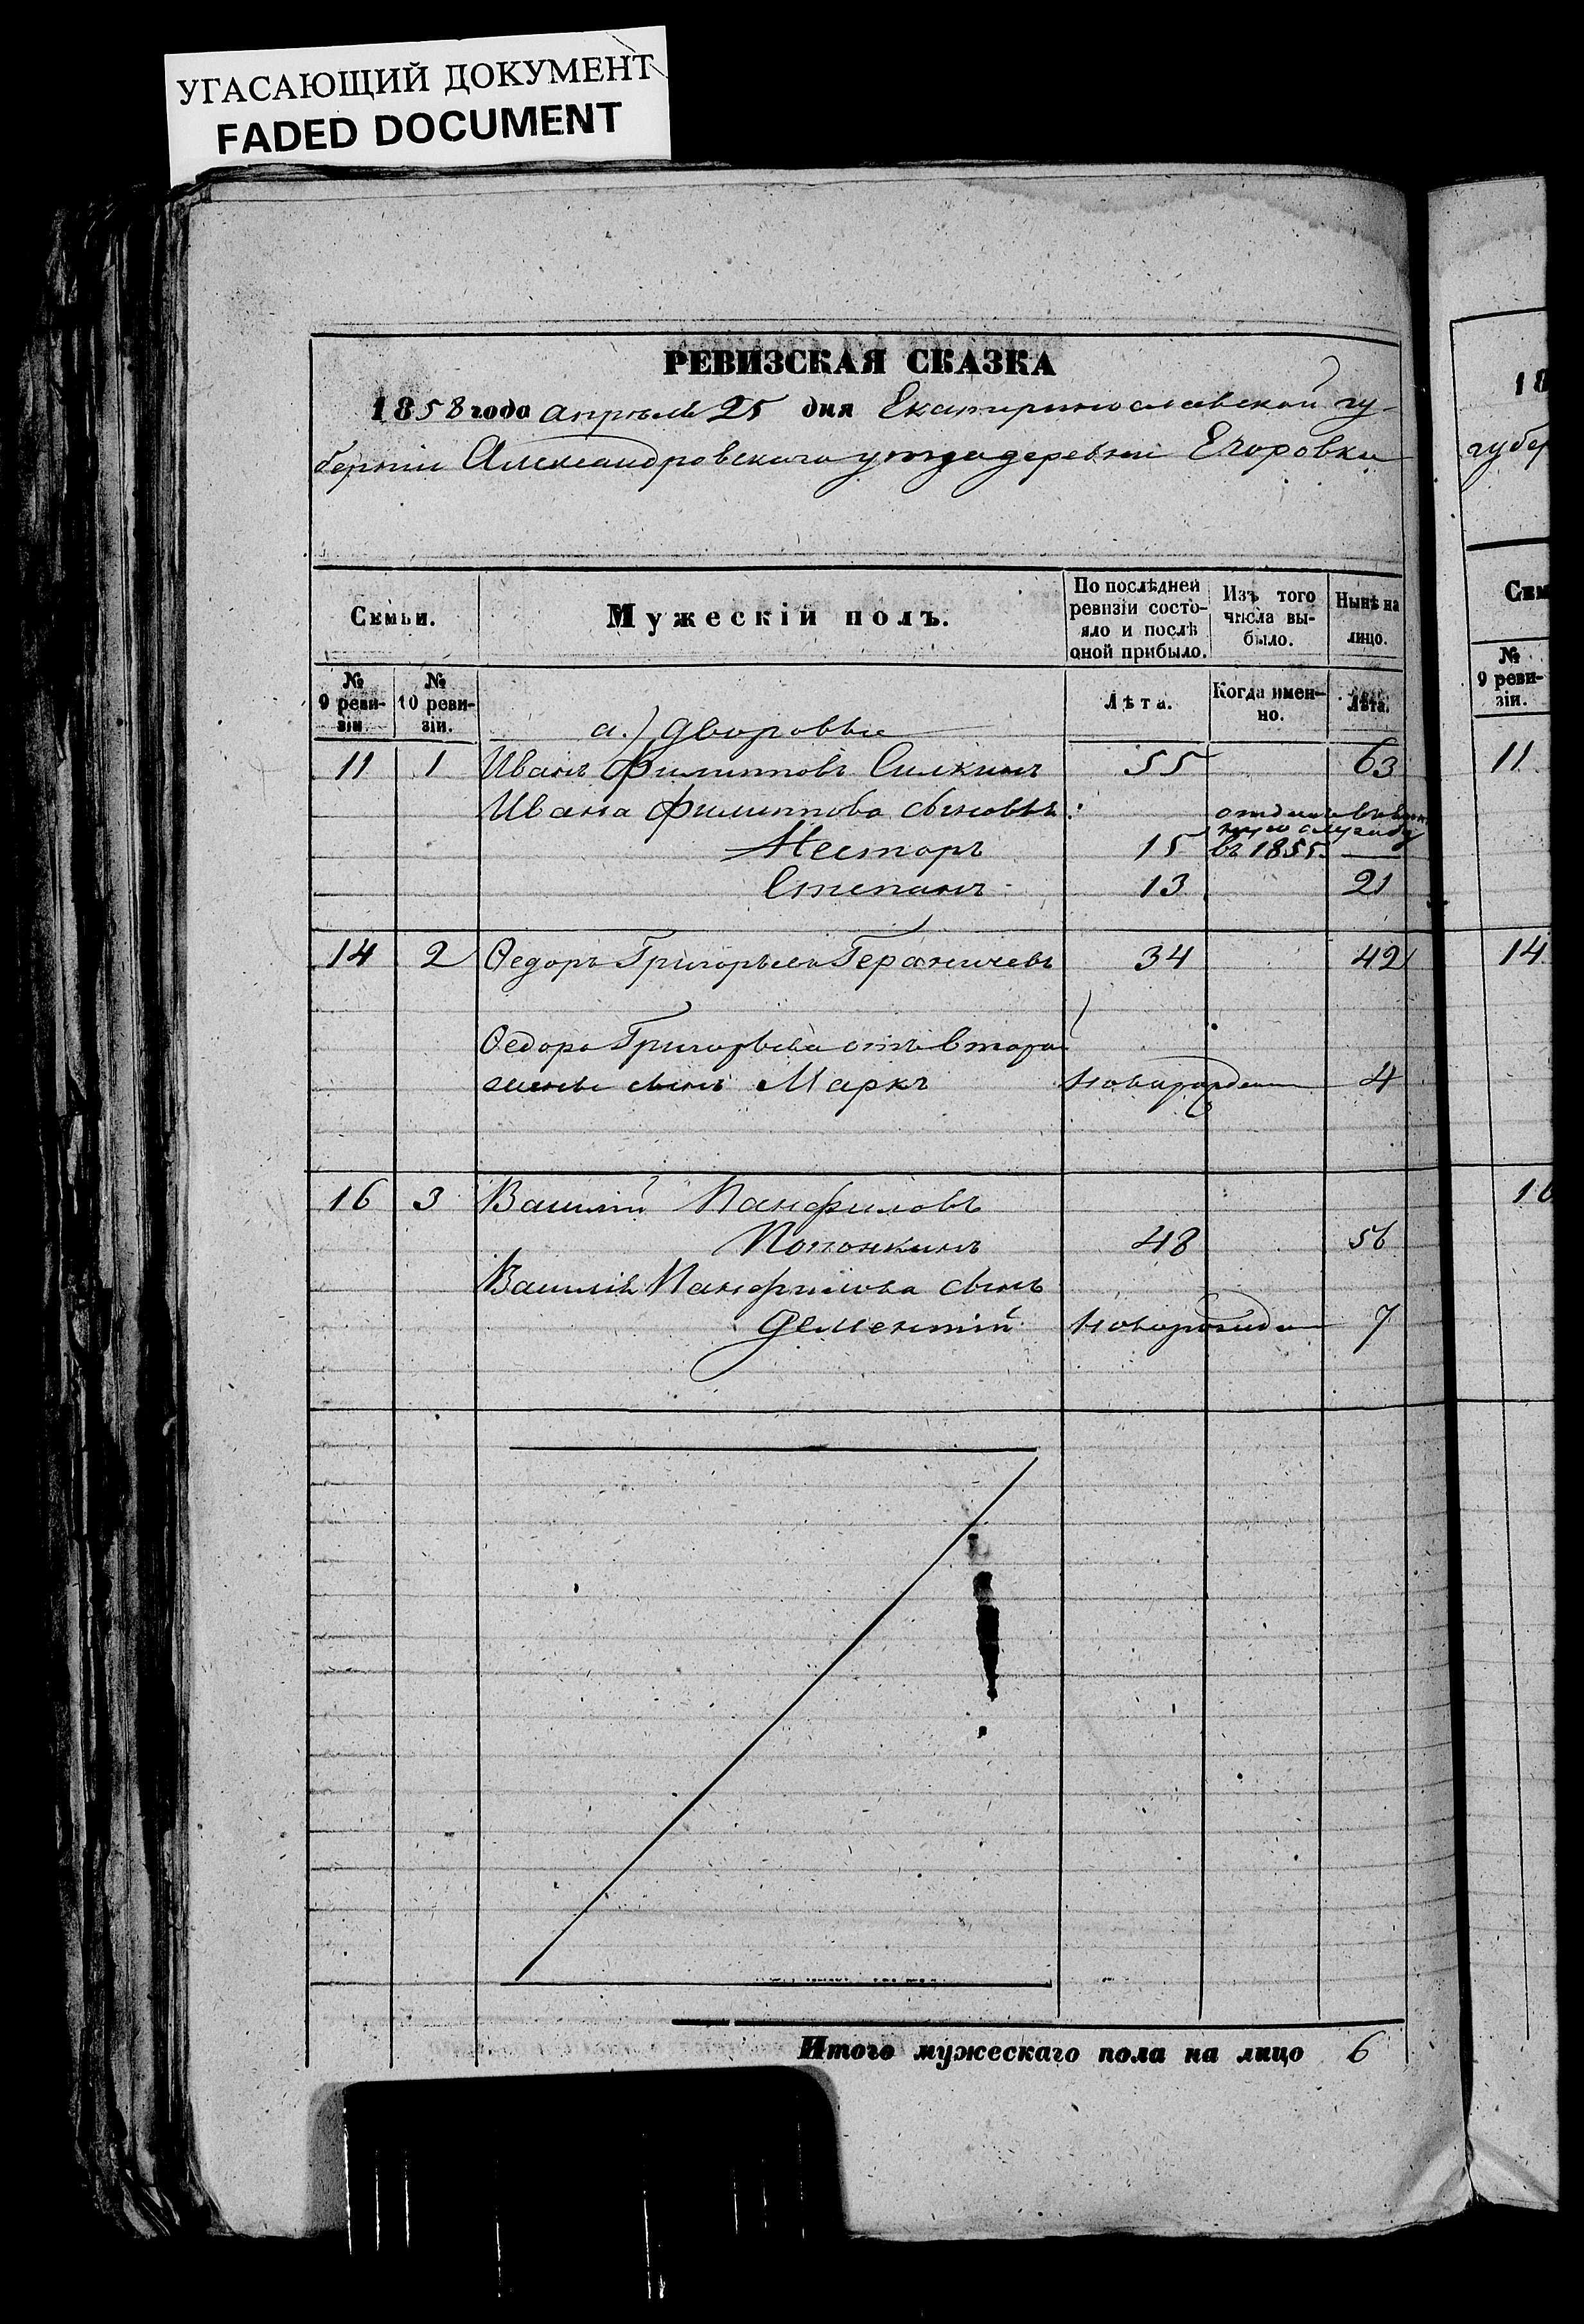 УГАСАЮЩИЙ ДОКУМЕНТ
FADED DOCUMENT
РЕВИЗСКАЯ СКАЗКА
1858 года апрѣля 25 дня Екатеринославской гу-
берніи Александровскаго уѣзда деревни Егоровки
Семьи.
Мужескій полъ.
По послѣдней ревизіи состо-яло и послѣ оной прибыло.
Изъ того числа вы-было.
Нынѣ на лицо.
№ 9 реви-зіи.
№ 10 реви-зіи.
Лѣта.
Когда имен-но.
Лѣта.
а.) дворовые
11 1 Иванъ Филипповъ Силкинъ 55 63
Ивана Филиппова сыновья:
Несторъ 15 въ 1855. —
Степанъ 13 21
14 2 Ѳедоръ Григорьевъ 34 42
Ѳедора Григорьева отъ второй
жены сынъ Маркъ новорожден 4
16 3 Василій Панфиловъ
Попонкинъ 48 56
Василія Панфилова сынъ
Дементій новорожден 7
Итого мужескаго пола на лицо 6
18
губер
Сем
№ 9 реви-зіи.
11
14
16